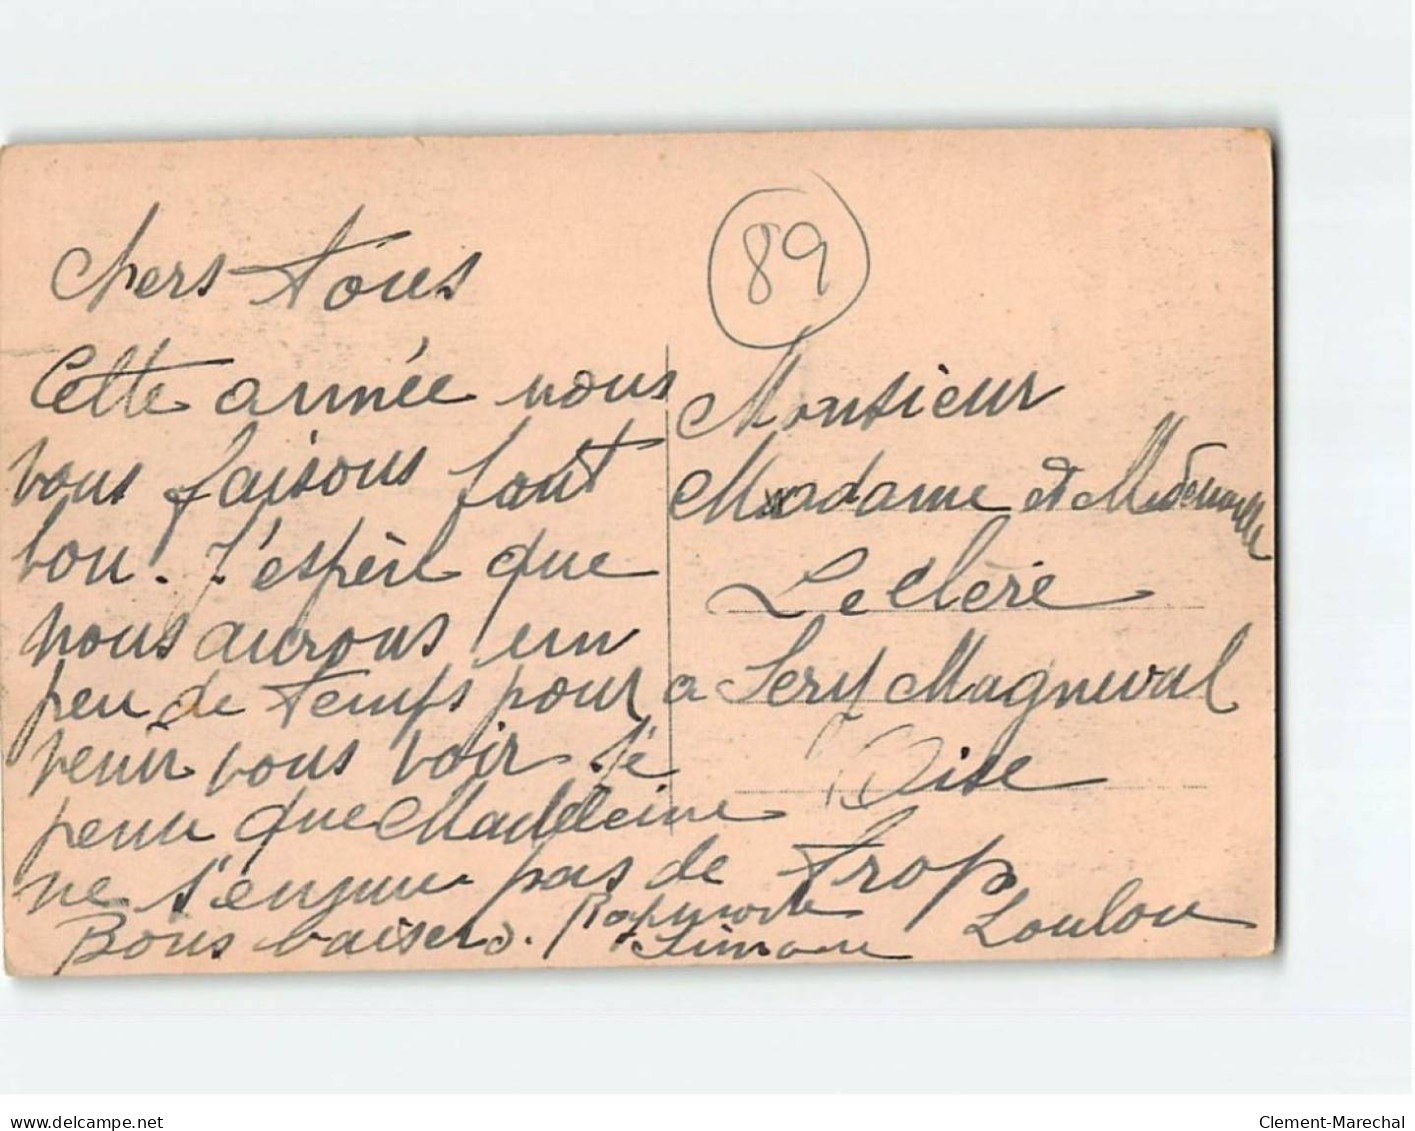 89
Chers tous
Cette année nous
vous faisons faut
bon. J'espère que
nous aurons un
peu de temps pour
venir vous voir. Je
pense que Madeleine
ne s'ennuie pas de trop
Bons baisers. Raymonde
Simone Loulou
Monsieur
Madame et Mademoiselle
Leclère
a Sery Magneval
Oise
delcampe.net
Clement-Marechal